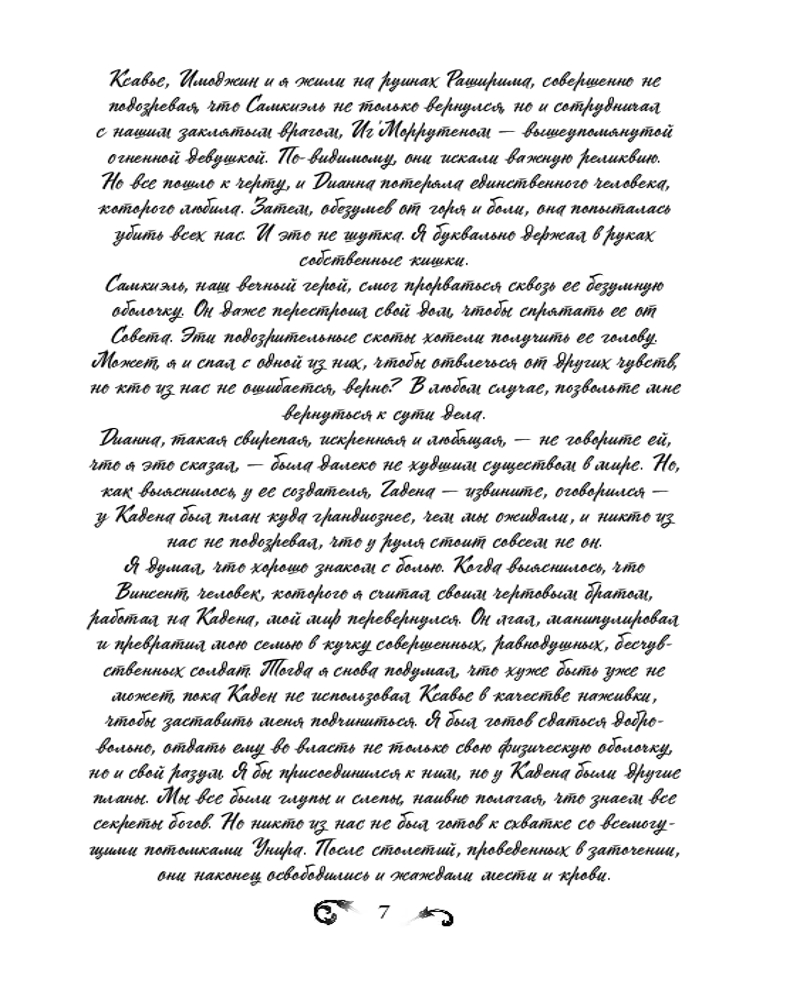 Ксавье, Имоджин и я жили на руинах Раширима, совершенно не
подозревая, что Самкиэль не только вернулся, но и сотрудничал
с нашим заклятым врагом, Иг'Моррутеном — вышеупомянутой
огненной девушкой. По-видимому, они искали важную реликвию.
Но все пошло к черту, и Дианна потеряла единственного человека,
которого любила. Затем, обезумев от горя и боли, она попыталась
убить всех нас. И это не шутка. Я буквально держал в руках
собственные кишки.
Самкиэль, наш вечный герой, смог прорваться сквозь ее безумную
оболочку. Он даже перестроил свой дом, чтобы спрятать ее от
Совета. Эти подозрительные скоты хотели получить ее голову.
Может, я и спал с одной из них, чтобы отвлечься от других чувств,
но кто из нас не ошибается, верно? В любом случае, позвольте мне
вернуться к сути дела.
Дианна, такая свирепая, искренняя и любящая, — не говорите ей,
что я это сказал, — была далеко не худшим существом в мире. Но,
как выяснилось, у ее создателя, Гадена — извините, оговорился —
у Кадена был план куда грандиознее, чем мы ожидали, и никто из
нас не подозревал, что у руля стоит совсем не он.
Я думал, что хорошо знаком с болью. Когда выяснилось, что
Винсент, человек, которого я считал своим чертовым братом,
работал на Кадена, мой мир перевернулся. Он лгал, манипулировал
и превратил мою семью в кучку совершенных, равнодушных, бесчув-
ственных солдат. Тогда я снова подумал, что хуже быть уже не
может, пока Каден не использовал Ксавье в качестве наживки,
чтобы заставить меня подчиниться. Я был готов сдаться добро-
вольно, отдать ему во власть не только свою физическую оболочку,
но и свой разум. Я бы присоединился к ним, но у Кадена были другие
планы. Мы все были глупы и слепы, наивно полагая, что знаем все
секреты богов. Но никто из нас не был готов к схватке со всемогу-
щими потомками Унира. После столетий, проведенных в заточении,
они наконец освободились и жаждали мести и крови.
7